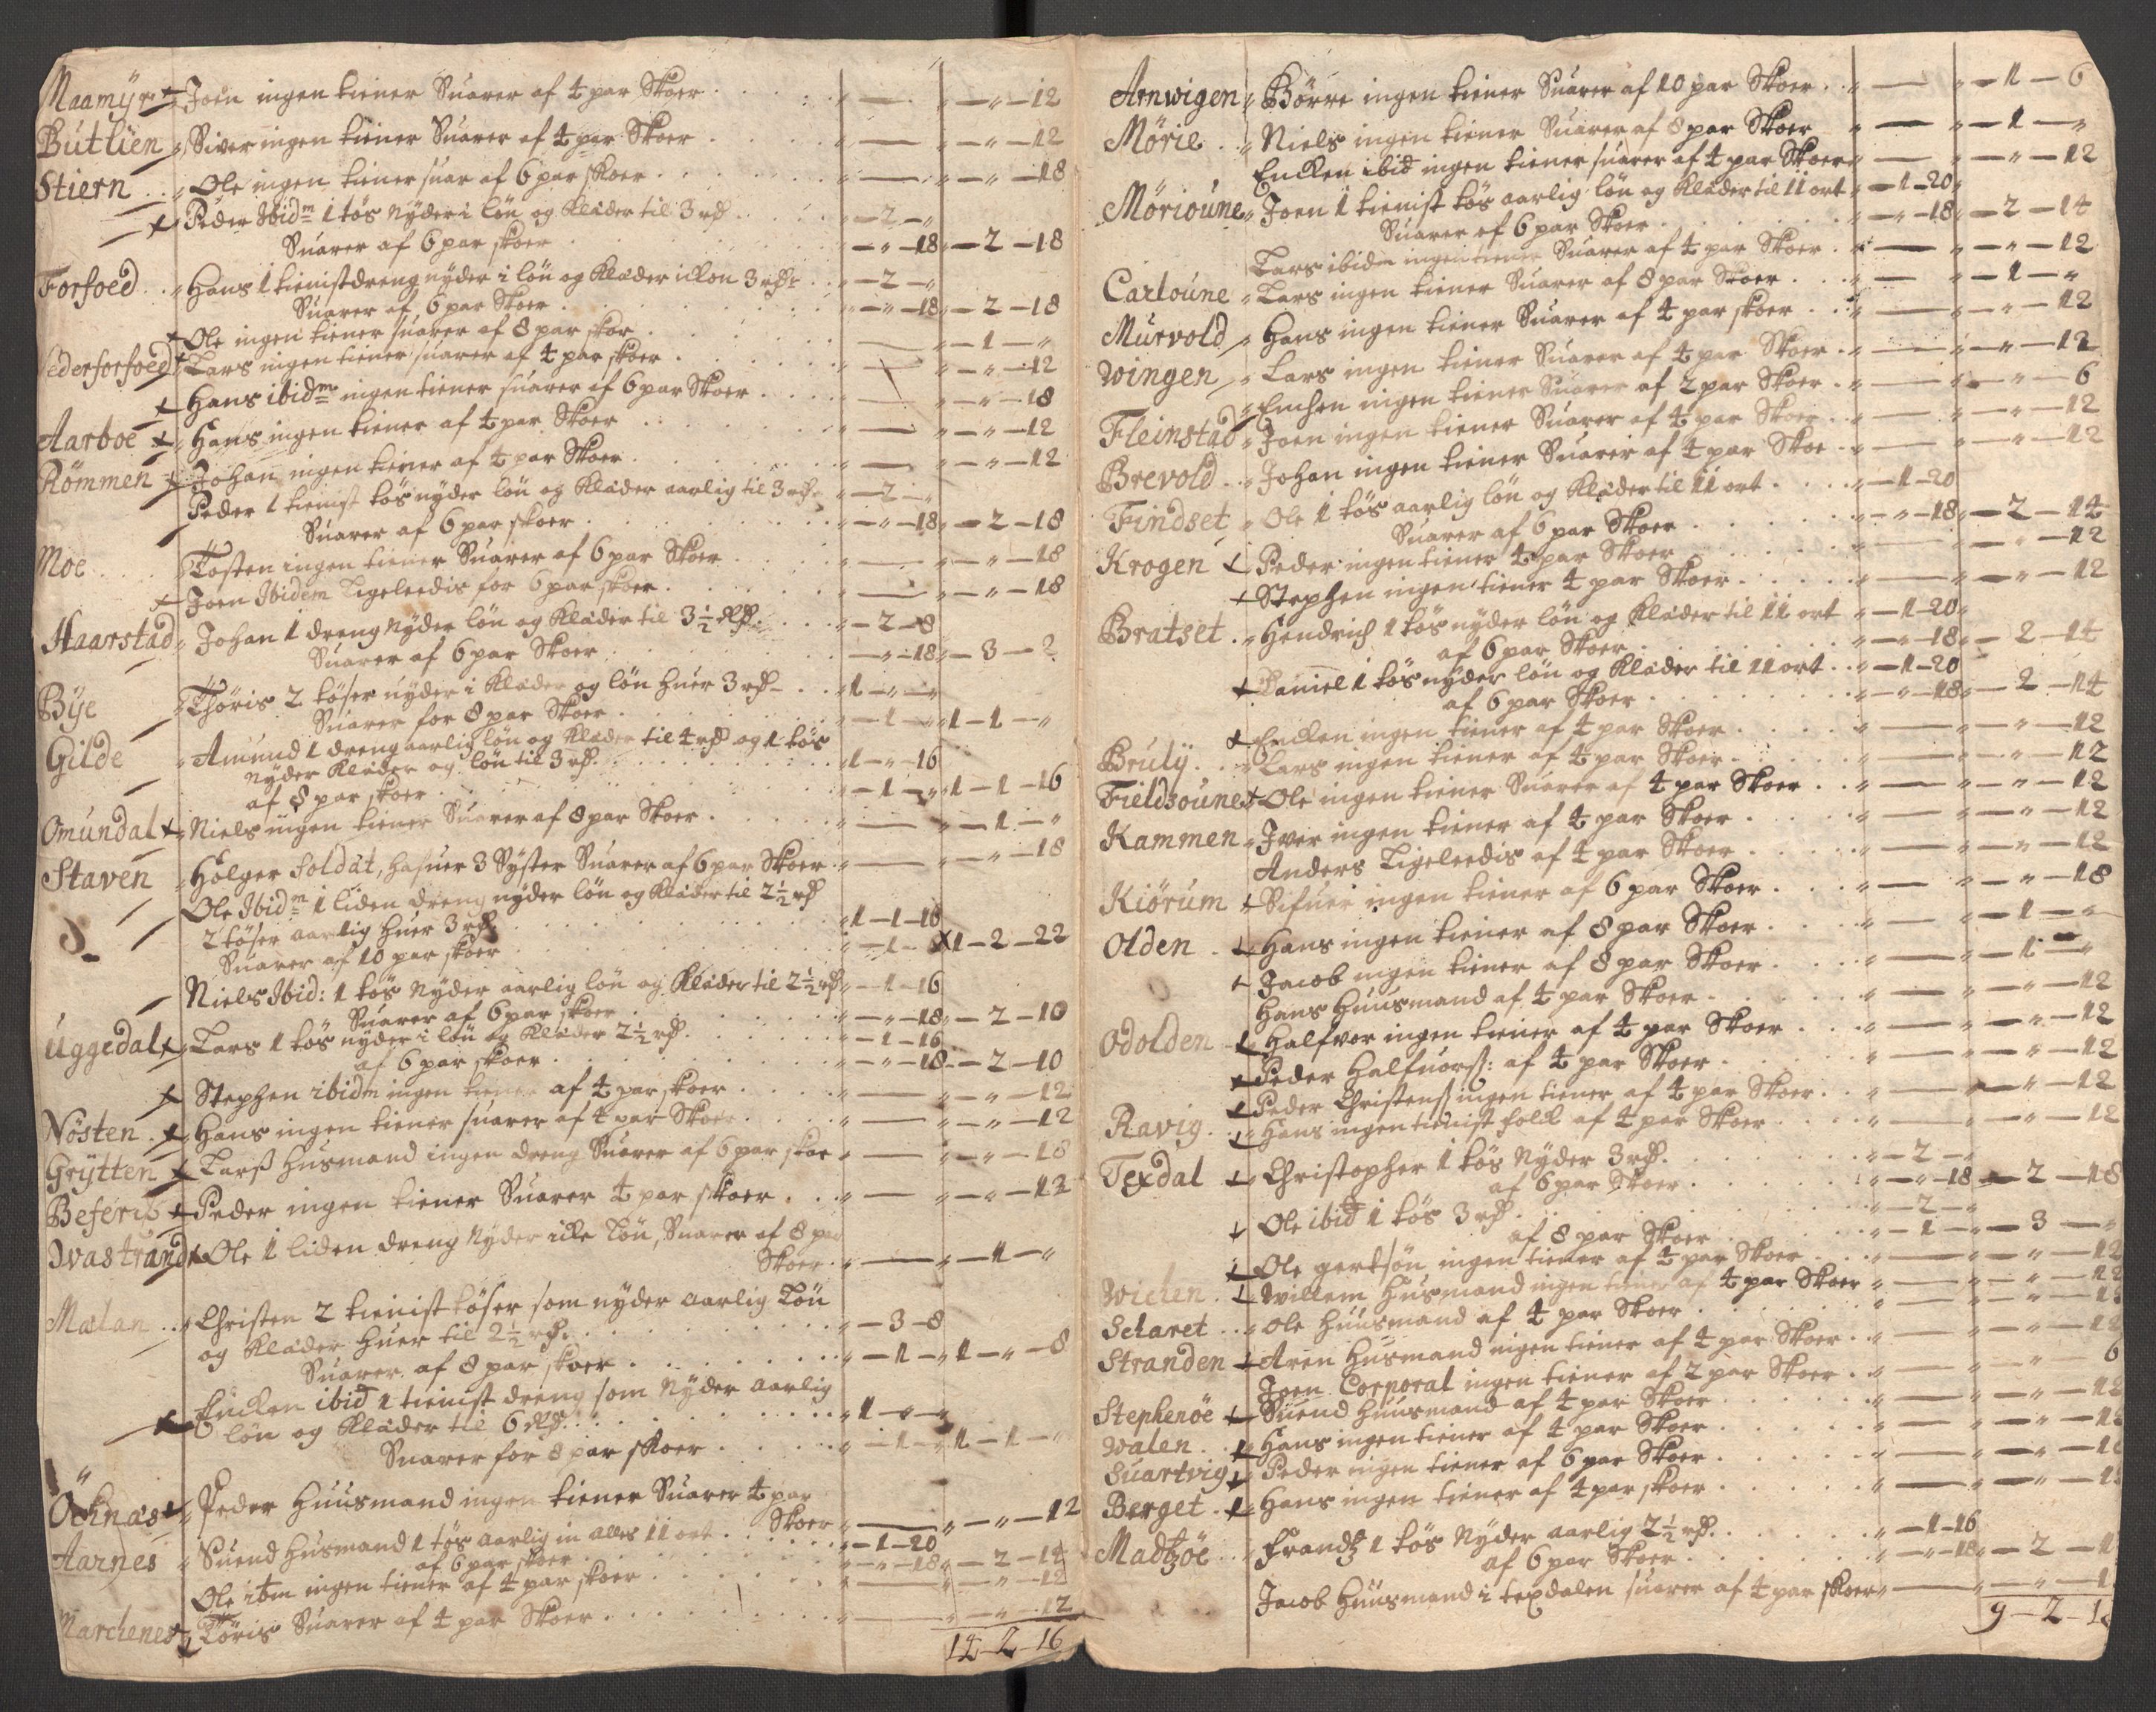 Maamÿr " Joen ingen tiener Suarer af 4 par Skoer . . . . " — " — " — 12
Butlien " Siver ingen tiener Suarer af 4 par Skoer . . . . " — " — " — 12
Stiern . . " Ole ingen tiener suar af 6 par skoer . . . . " — " — " — 18
Peder Ibidm 1 tøs nÿder i løn og Klæder til 3 rd . . . " — 2 — "
Suarer af 6 par skoer . . . . " — " — 18 " — 2 — 18
Forfoed . . " Hans 1 tienistdreng nÿder i løn og Klæder 3 rdr . . " — 2 — "
Suarer af 6 par Skoer . . . . " — " — 18 " — 2 — 18
Ole ingen tiener suarer af 8 par skor . . . . — " — 1 — "
Lars ingen tiener suarer af 4 par skoer . . . . " — " — " — 12
Hans ibidm ingen tiener suarer af 6 par Skoer . . . . " — " — " — 18
Aarboe " Hans ingen tiener af 4 par Skoer . . . . " — " — " — 12
Römmen " Johan ingen tiener af 4 par Skoer . . . . " — " — " — 12
Peder 1 tienist tøs nÿder løn og Klæder aarlig til 3 rd " — 2 — "
Suarer af 6 par skoer . . . . " — " — 18 " — 2 — 18
Moe . . . " Tosten ingen tiener Suarer af 6 par Skoer . . . . " — " — " — 18
Joen Ibidem Ligeleedis for 6 par skoer . . . . " — " — " — 18
Haarstad " Johan 1 dreng nÿder løn og Klæder til 3½ rd . . . . " — 2 — 8
Suarer af 6 par Skoer . . . . " — " — 18 " — 3 — 2
Bÿe " Thøris 2 tøser nÿder i Klæder og løn huer 3 rd — . . " 1 — " — "
Suarer for 8 par Skoer . . . . " — 1 — " 1 — 1 — "
Gilde " Amund 1 dreng aarlig løn og Klæder til 4 rd og 1 tøs
nÿder Klæder og løn til 3 rd . . . . " 1 — " — 16
af 8 par skoer . . . . " — 1 — " 1 — 1 — 16
Omundal " Niels ingen tiener Suarer af 8 par Skoer . . . . " — " — 1 — "
Staven " Holger Soldat, hafuer 3 Sÿster Suarer af 6 par Skoer . " — " — " — 18
Ole Ibidm 1 liden dreng nÿder løn og Klæder til 2½ rd
2 tøser aarlig huer 3 rd . . . . " 1 — 1 — 16
Suarer af 10 par skoer . . . . 1 — 2 — 22
Niels Ibid: 1 tøs Nÿder aarlig løn og Klæder til 2½ rd " — 1 — 16
Suarer af 6 par skoer . . . . " — " — 18 " — 2 — 10
Uggedal " Lars 1 tøs nÿder i løn og Klæder 2½ rd . . . . " — 1 — 16
af 6 par skoer . . . . " — " — 18 — 2 — 10
Stephen ibidm ingen tiener af 4 par skoer . . . . " — " — " — 12
Nösten . " Hans ingen tiener suarer af 4 par Skoer . . . . " — " — " — 12
Grÿtten " Larss Husmand ingen dreng Suarer af 6 par skoe " — " — " — 18
Peder ingen tiener Suarer 4 par skoer . . . " — " — " — 12
Ole 1 liden dreng Nÿder icke Løn, Suarer af 8 par
Skoer . " — " — 1 — "
Malan . . " Christen 2 tienist tøser som nÿder aarlig Løn
og Klæder huer til 2½ rd . . . . " — 3 — 8
Suarer af 8 par skoer . . . . " — 1 — " 1 — " — 8
Encken ibid 1 tienist dreng som Nÿder aarlig
løn og Klæder til 6 rd . . . . " 1 — " — "
Suarer for 8 par skoer . . . . " — 1 — " 1 — 1 — "
Peder Huusmand ingen tiener Suarer 4 par
Skoer " — " — " — 12
Aarnes " Suend Husmand 1 tøs aarlig in alles 11 ort . . " — 1 — 20
af 6 par skoer . . . . " — " — 18 " — 2 — 14
Ole itm ingen tiener af 4 par skoer . . . . " — " — " — 12
Tøris Suarer af 4 par Skoer . . . . " — " — " — 12
14 — 2 — 16
Arnwigen " Børre ingen tiener Suarer af 10 par Skoer . . " — " — 1 — 6
Mörie . . " Niels ingen tiener Suarer af 8 par Skoer " — " — 1 — "
Encken ibid ingen tiener suarer af 4 par Skoer " — " — " — 12
Mörioune " Joen 1 tienist tøs aarlig løn og Klæder til 11 ort " — 1 — 20
Suarer af 6 par Skoer . . . . " — " — 18 " — 2 — 14
Lars ibidm ingen tiener Suarer af 4 par Skoer . " — " — " — 12
Carloune " Lars ingen tiener Suarer af 8 par Skoer . . . " — " — 1 — "
Murvold " Hans ingen tiener Suarer af 4 par skoer . . " — " — " — 12
Wingen " Lars ingen tiener Suarer af 4 par Skoer . . " — " — " — 12
" Enchen ingen tiener Suarer af 2 par Skoer . " — " — " — 6
Fleinstad " Joen ingen tiener Suarer af 4 par Skoer . . " — " — " — 12
Brevold . . " Johan ingen tiener Suarer af 4 par Skoe . . " — " — " — 12
Findset " Ole 1 tøs aarlig løn og Klæder til 11 ort . . . . " — 1 — 20
Suarer af 6 par Skoer . . . . " — " — 18 " — 2 — 14
Krogen Peder ingen tiener 4 par Skoer . . . . " — " — " — 12
Stephen ingen tiener 4 par Skoer . . . . " — " — " — 12
Bratset . " Hendrich 1 tøs nÿder løn og Klæder til 11 ort " — 1 — 20
af 6 par Skoer . . . . " — " — 18 " — 2 — 14
Daniel 1 tøs nÿder løn og Klæder til 11 ort . . " — 1 — 20
af 6 par Skoer . . . . " — " — 18 " — 2 — 14
Encken ingen tiener af 4 par Skoer . . . . " — " — " — 12
Brulÿ . . " Lars ingen tiener af 4 par Skoer . . . . " — " — " — 12
Fieldsounes Ole ingen tiener Suarer af 4 par Skoer . . " — " — " — 12
Kammen " Iver ingen tiener af 4 par Skoer . . . . " — " — " — 12
Anders Ligeleedis af 4 par Skoer . . . . " — " — " — 12
Kiörum Sifuer ingen tiener af 6 par Skoer . . . . " — " — " — 18
Olden . Hans ingen tiener af 8 par Skoer . . . . " — " — 1 — "
Jacob ingen tiener af 8 par Skoer . . . . " — " — 1 — "
Hans Huusmand af 4 par Skoer . . . . " — " — " — 12
Odolden Halfvor ingen tiener af 4 par Skoer . . . . " — " — " — 12
Peder Halfuorss: af 4 par Skoer . . . . " — " — " — 12
Peder Christenss ingen tiener af 4 par Skoer . . " — " — " — 12
Ravig . . " Hans ingen tienist folck af 4 par Skoer . . . . " — " — " — 12
Texdal " Christopher 1 tøs Nÿder 3 rd . . . . " — 2 — "
af 6 par Skoer . . . . " — " — 18 — 2 — 18
Ole ibid 1 tøs 3 rd . . . . " — 2 — "
af 8 par Skoer . . . . " — 1 — " — 3 — "
Ole gertsøn ingen tiener af 4 par Skoer . . . . " — " — " — 12
Wichen . Willem Husmand ingen tiener af 4 par Skoer " — " — " — 12
Schret . . " Ole Huusmand af 4 par Skoer . . . . " — " — " — 12
Stranden Aren Husmand ingen tiener af 4 par Skoer . . " — " — " — 12
Joen Corporal ingen tiener af 2 par Skoer . . " — " — " 6
Stephenöe Suend Huusmand af 4 par Skoer . . . . " — " — " — 12
Walen . . Hans ingen tiener af 4 par Skoer . . . . " — " — " — 12
Suartvig Peder ingen tiener af 6 par Skoer . . . . " — " — " — 18
Berget . Hans ingen tiener af 4 par skoer . . . . " — " — " — 12
Madtzöe . . Frandtz 1 tøs Nÿder aarlig 2½ rd . . . . " — 1 — 16
af 6 par Skoer . . . . " — " — 18 " — 2 — 1
Jacob Huusmand i texdalen suarer af 4 par skoer " — " — " — 1
9 — 2 — 1